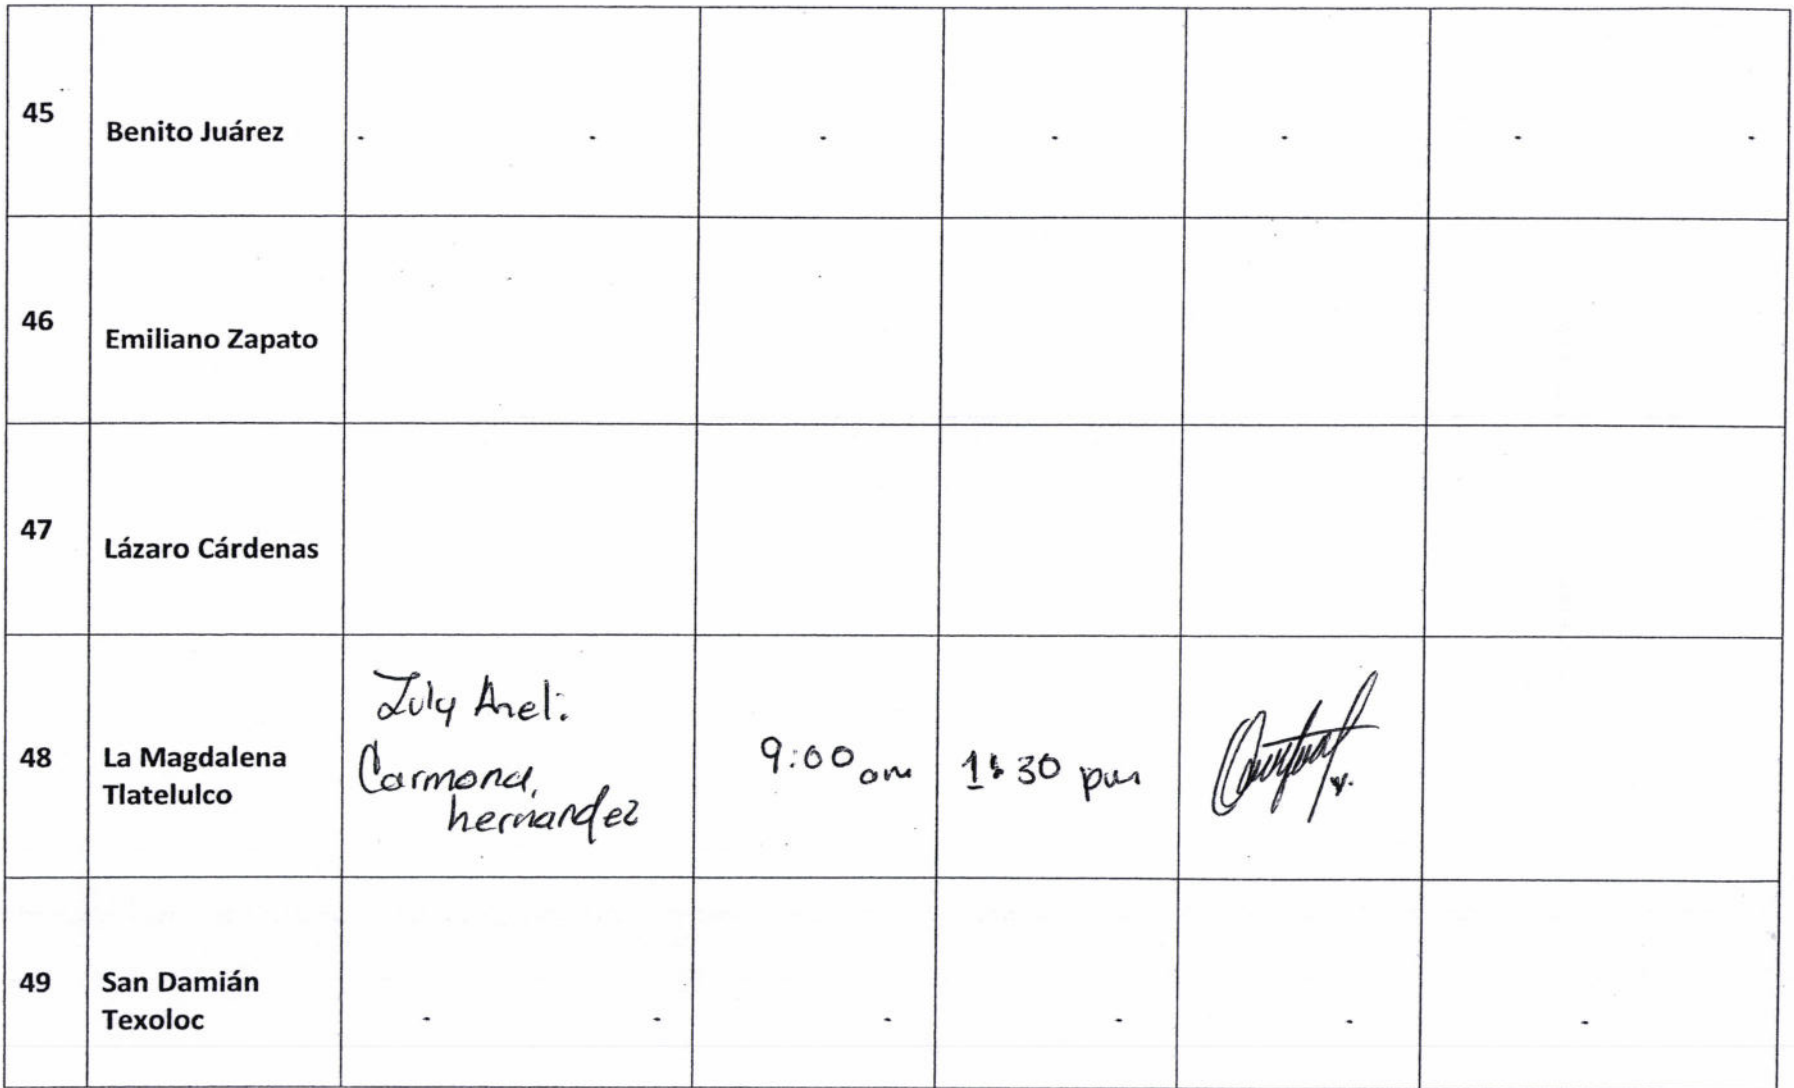 45
Benito Juárez
46
Emiliano Zapato
47
Lázaro Cárdenas
48
La Magdalena
Tlatelulco
Areli
Carmona
hernandez
9:00 am
30 pm
49
San Damián
Texoloc